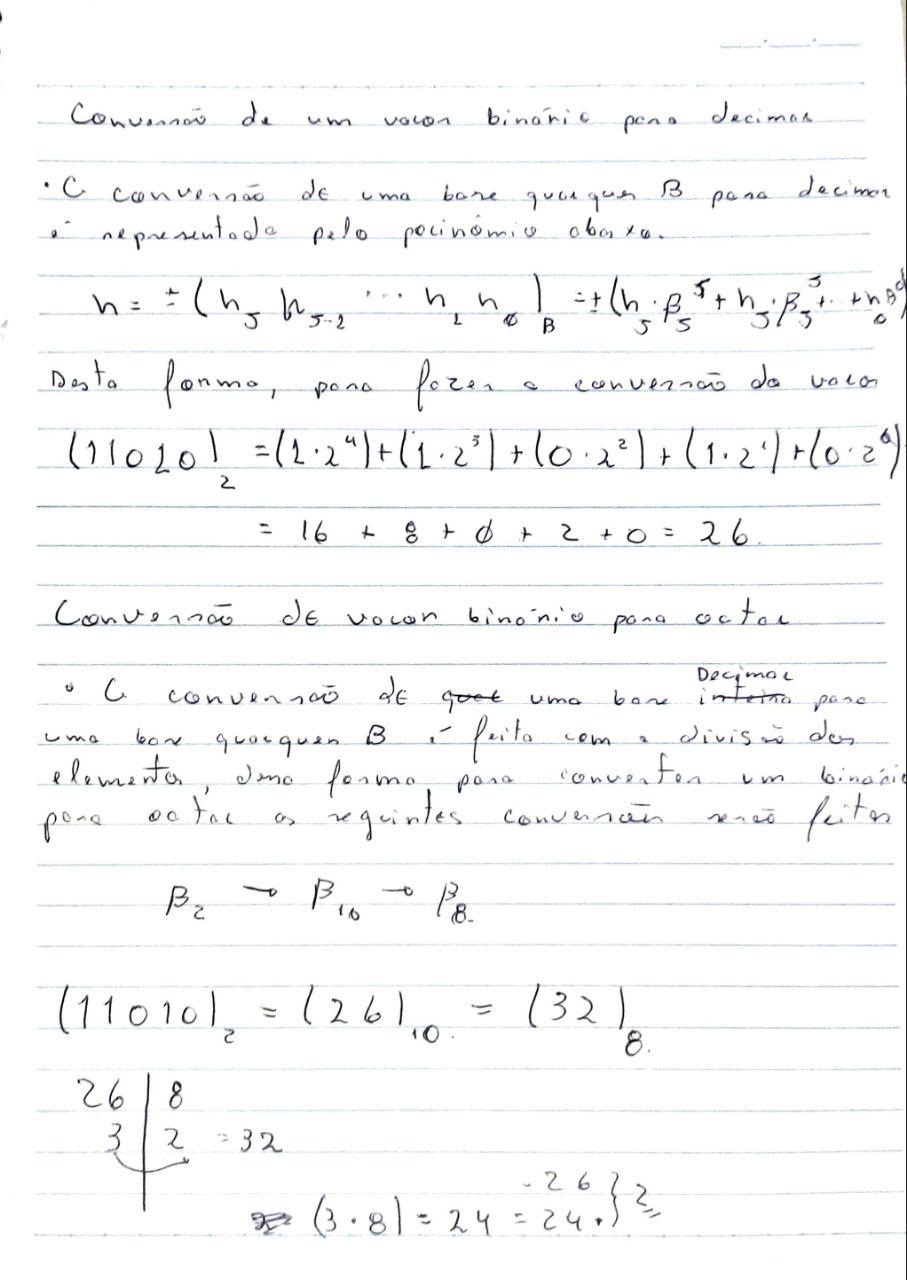 Conversão de um valor binário para decimal
• A conversão de uma base qualquer B para decimal
é representada pelo polinômio abaixo.
n = ± (n_5 n_5-2 ... n_1 n_0)_B = ±(n_5·β_5^5 + n_5·β_3^3 + .. + n_0 B^0)
Desta forma, para fazer a conversão do valor
(11010)_2 = (1·2^4)+(1·2^3)+(0·2^2)+(1·2^1)+(0·2^0)
= 16 + 8 + 0 + 2 + 0 = 26.
Conversão de valor binário para octal
• A conversão de uma base Decimal para
uma base qualquer B é feita com a divisão dos
elementos, forma para converter um binário
para octal as seguintes conversões serão feitas
β_2 → β_10 → β_8.
(11010)_2 = (26)_10. = (32)_8.
26 | 8
3 | 2 = 32
- 26
(3·8) = 24 = 24. } 2